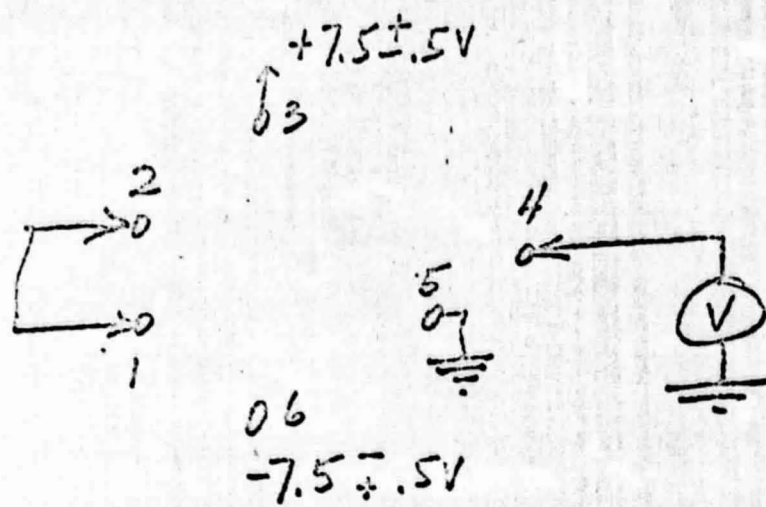 +7.5±.5V
3
2
4
5
V
1
06
-7.5∓.5V